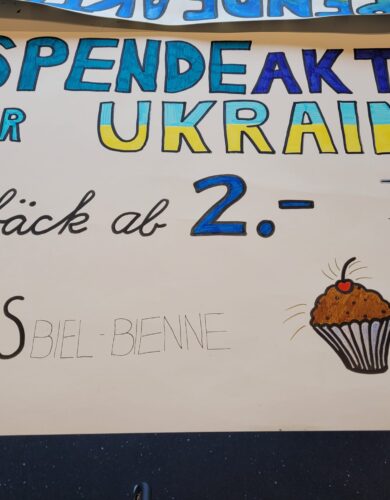 SPENDEAKT
R UKRAIN
bäck ab 2.-
S BIEL-BIENNE